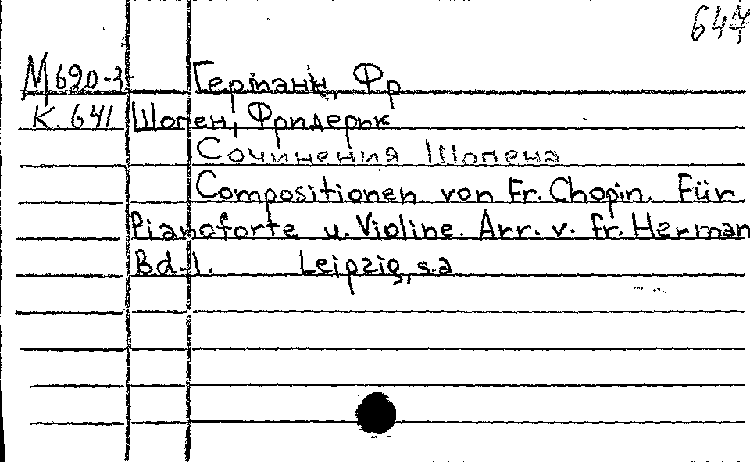 644
М690-3 Германн, Фр
К 641 Шопен, Фридерик
Сочинения Шопена
Compositionen von Fr. Chopin. Für
Pianoforte u. Violine. Arr. v. Fr. Herman
Bd. 1. Leipzig, s.a